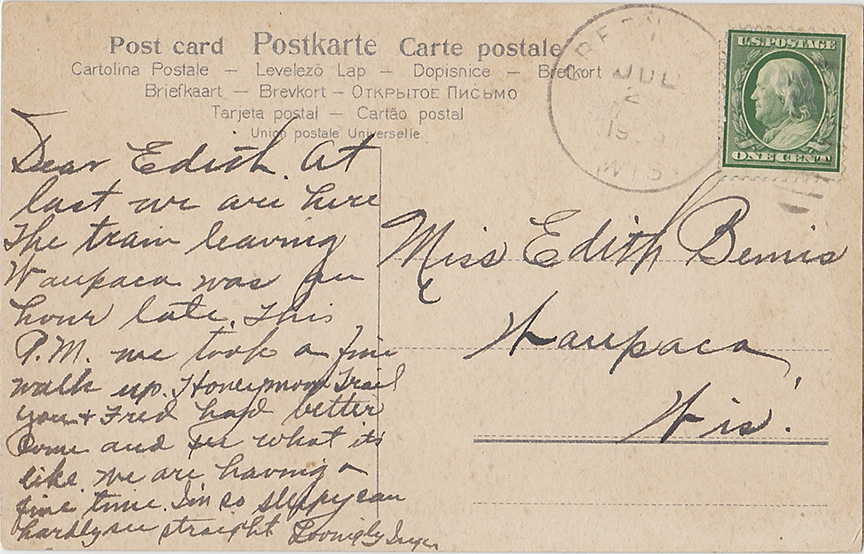 Post card Postkarte Carte postale
Cartolina Postale – Levelező Lap – Dopisnice – Brefkort
Briefkaart – Brevkort – Открытое Письмо
Tarjeta postal – Cartão postal
Union postale Universelle.
U.S. POSTAGE
ONE CENT
GREEN
JUL
2
WIS.
Dear Edith. At
last we are here
The train leaving
Waupaca was an
hour late. This
P.M. we took a fine
walk up. Honeymoon Trail
you + Fred had better
Come and see what its
like we are having a
fine time. Im so sleepy can
hardly see straight Lovingly
Miss Edith Bemis
Waupaca,
Wis.